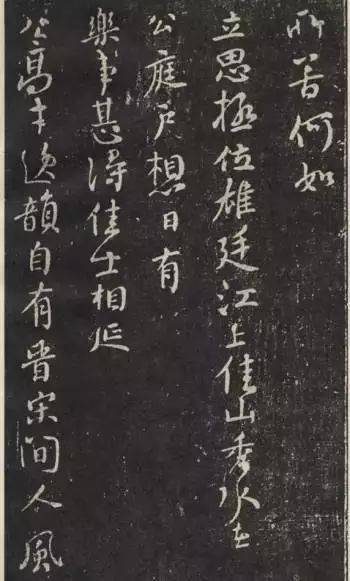 所苦何如
立思拯位雄廷江上佳山秀水在
公庭戶想日有
樂事甚得佳士相延
公高才逸韻自有晉宋間人風